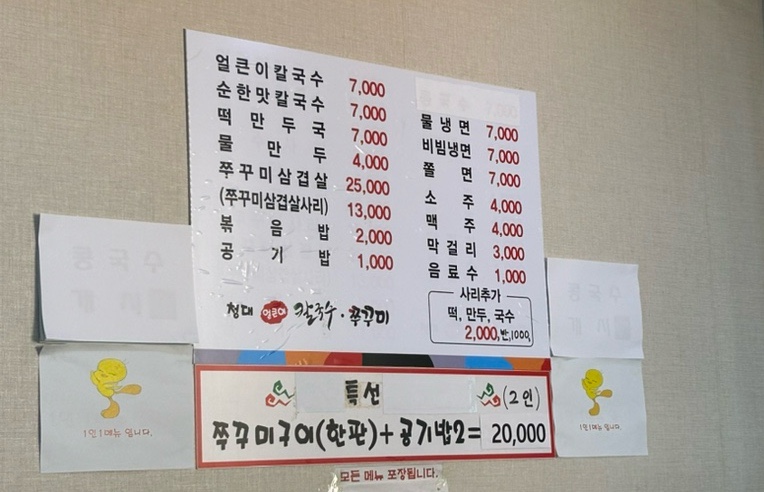 얼큰이칼국수 7,000
순한맛칼국수 7,000
떡만두국 7,000
물만두 4,000
쭈꾸미삼겹살 25,000
(쭈꾸미삼겹살사리) 13,000
볶음밥 2,000
공기밥 1,000
물냉면 7,000
비빔냉면 7,000
쫄면 7,000
소주 4,000
맥주 4,000
막걸리 3,000
음료수 1,000
사리추가
떡, 만두, 국수
2,000, 반,1000,
청대 얼큰이 칼국수·쭈꾸미
특선 (2인)
쭈꾸미구이(한판)+공기밥2= 20,000
모든 메뉴 포장됩니다.
콩국수
개시
1인 1메뉴 입니다.
콩국수
개시
1인 1메뉴 입니다.